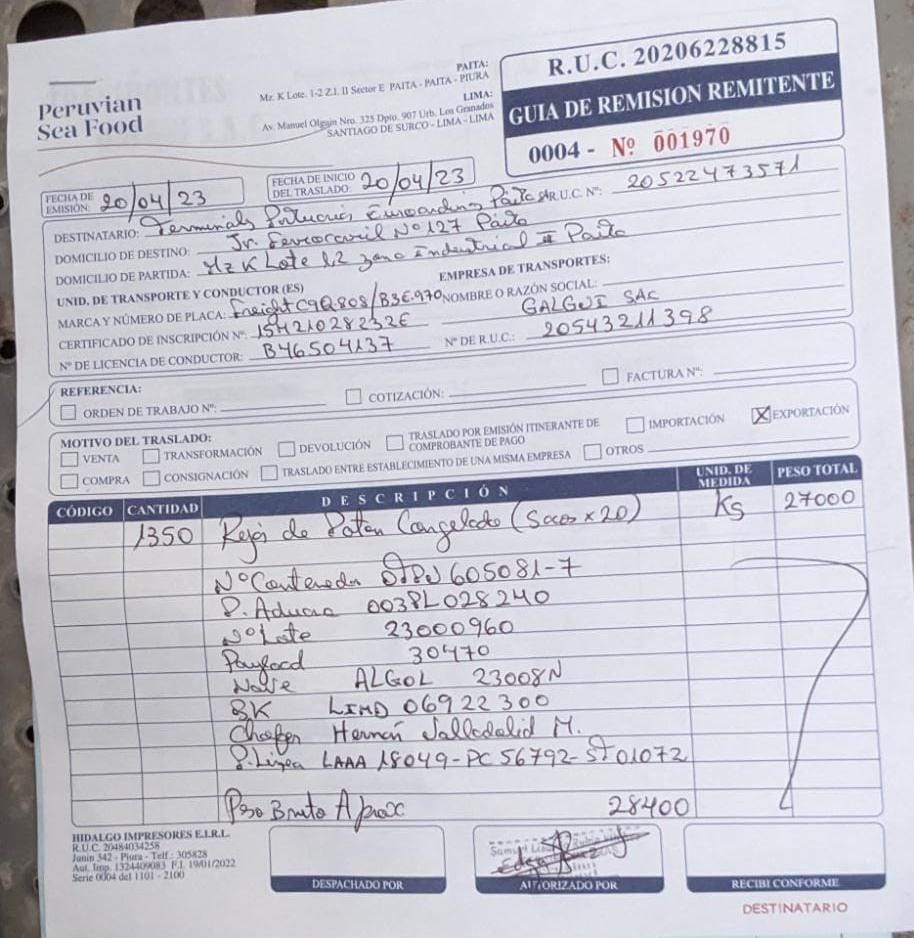 Peruvian
Sea Food
PAITA:
Mz. K Lote. 1-2 Z.I. II Sector E PAITA - PAITA - PIURA
LIMA:
Av. Manuel Olguin Nro. 325 Dpto. 907 Urb. Los Granados
SANTIAGO DE SURCO - LIMA - LIMA
R.U.C. 20206228815
GUIA DE REMISION REMITENTE
0004 - Nº 001970
FECHA DE EMISIÓN: 20/04/23
FECHA DE INICIO DEL TRASLADO: 20/04/23
DESTINATARIO: Terminals Portuarios Euroandinos Paita SA R.U.C. Nº: 20522473571
DOMICILIO DE DESTINO: Jr. Nº 127 Paita
DOMICILIO DE PARTIDA: Mz K Lote 1,2 zona Industrial II Paita
UNID. DE TRANSPORTE Y CONDUCTOR (ES) EMPRESA DE TRANSPORTES:
MARCA Y NÚMERO DE PLACA: Freight C9Q808/B3E-970 NOMBRE O RAZÓN SOCIAL:
GALGUI SAC
CERTIFICADO DE INSCRIPCIÓN Nº: 15421028232E
Nº DE LICENCIA DE CONDUCTOR: B46504137 Nº DE R.U.C.: 20543211398
REFERENCIA:
ORDEN DE TRABAJO Nº: COTIZACIÓN: FACTURA Nº:
MOTIVO DEL TRASLADO:
VENTA TRANSFORMACIÓN DEVOLUCIÓN TRASLADO POR EMISIÓN ITINERANTE DE COMPROBANTE DE PAGO IMPORTACIÓN X EXPORTACIÓN
COMPRA CONSIGNACIÓN TRASLADO ENTRE ESTABLECIMIENTO DE UNA MISMA EMPRESA OTROS
CÓDIGO CANTIDAD DESCRIPCIÓN UNID. DE MEDIDA PESO TOTAL
1350 de Potón Congelado (Sacos x 20) Kg 27000
Nº Contenedor 605081-7
P. Aduana 003PL028240
Nº Lote 23000960
Payload 30470
Nave ALGOL 23008N
BK LIMD 06922300
Chofer Hernán Valladolid M.
P. Linea LAAA 18049-PC 56792-ST 01072
Peso Bruto Aprox 28400
HIDALGO IMPRESORES E.I.R.L.
R.U.C. 20484034258
Junin 342 - Piura - Telf.: 305828
Aut. Imp. 1324409083 F.I. 19/01/2022
Serie 0004 del 1101 - 2100
DESPACHADO POR
AUTORIZADO POR
RECIBI CONFORME
DESTINATARIO